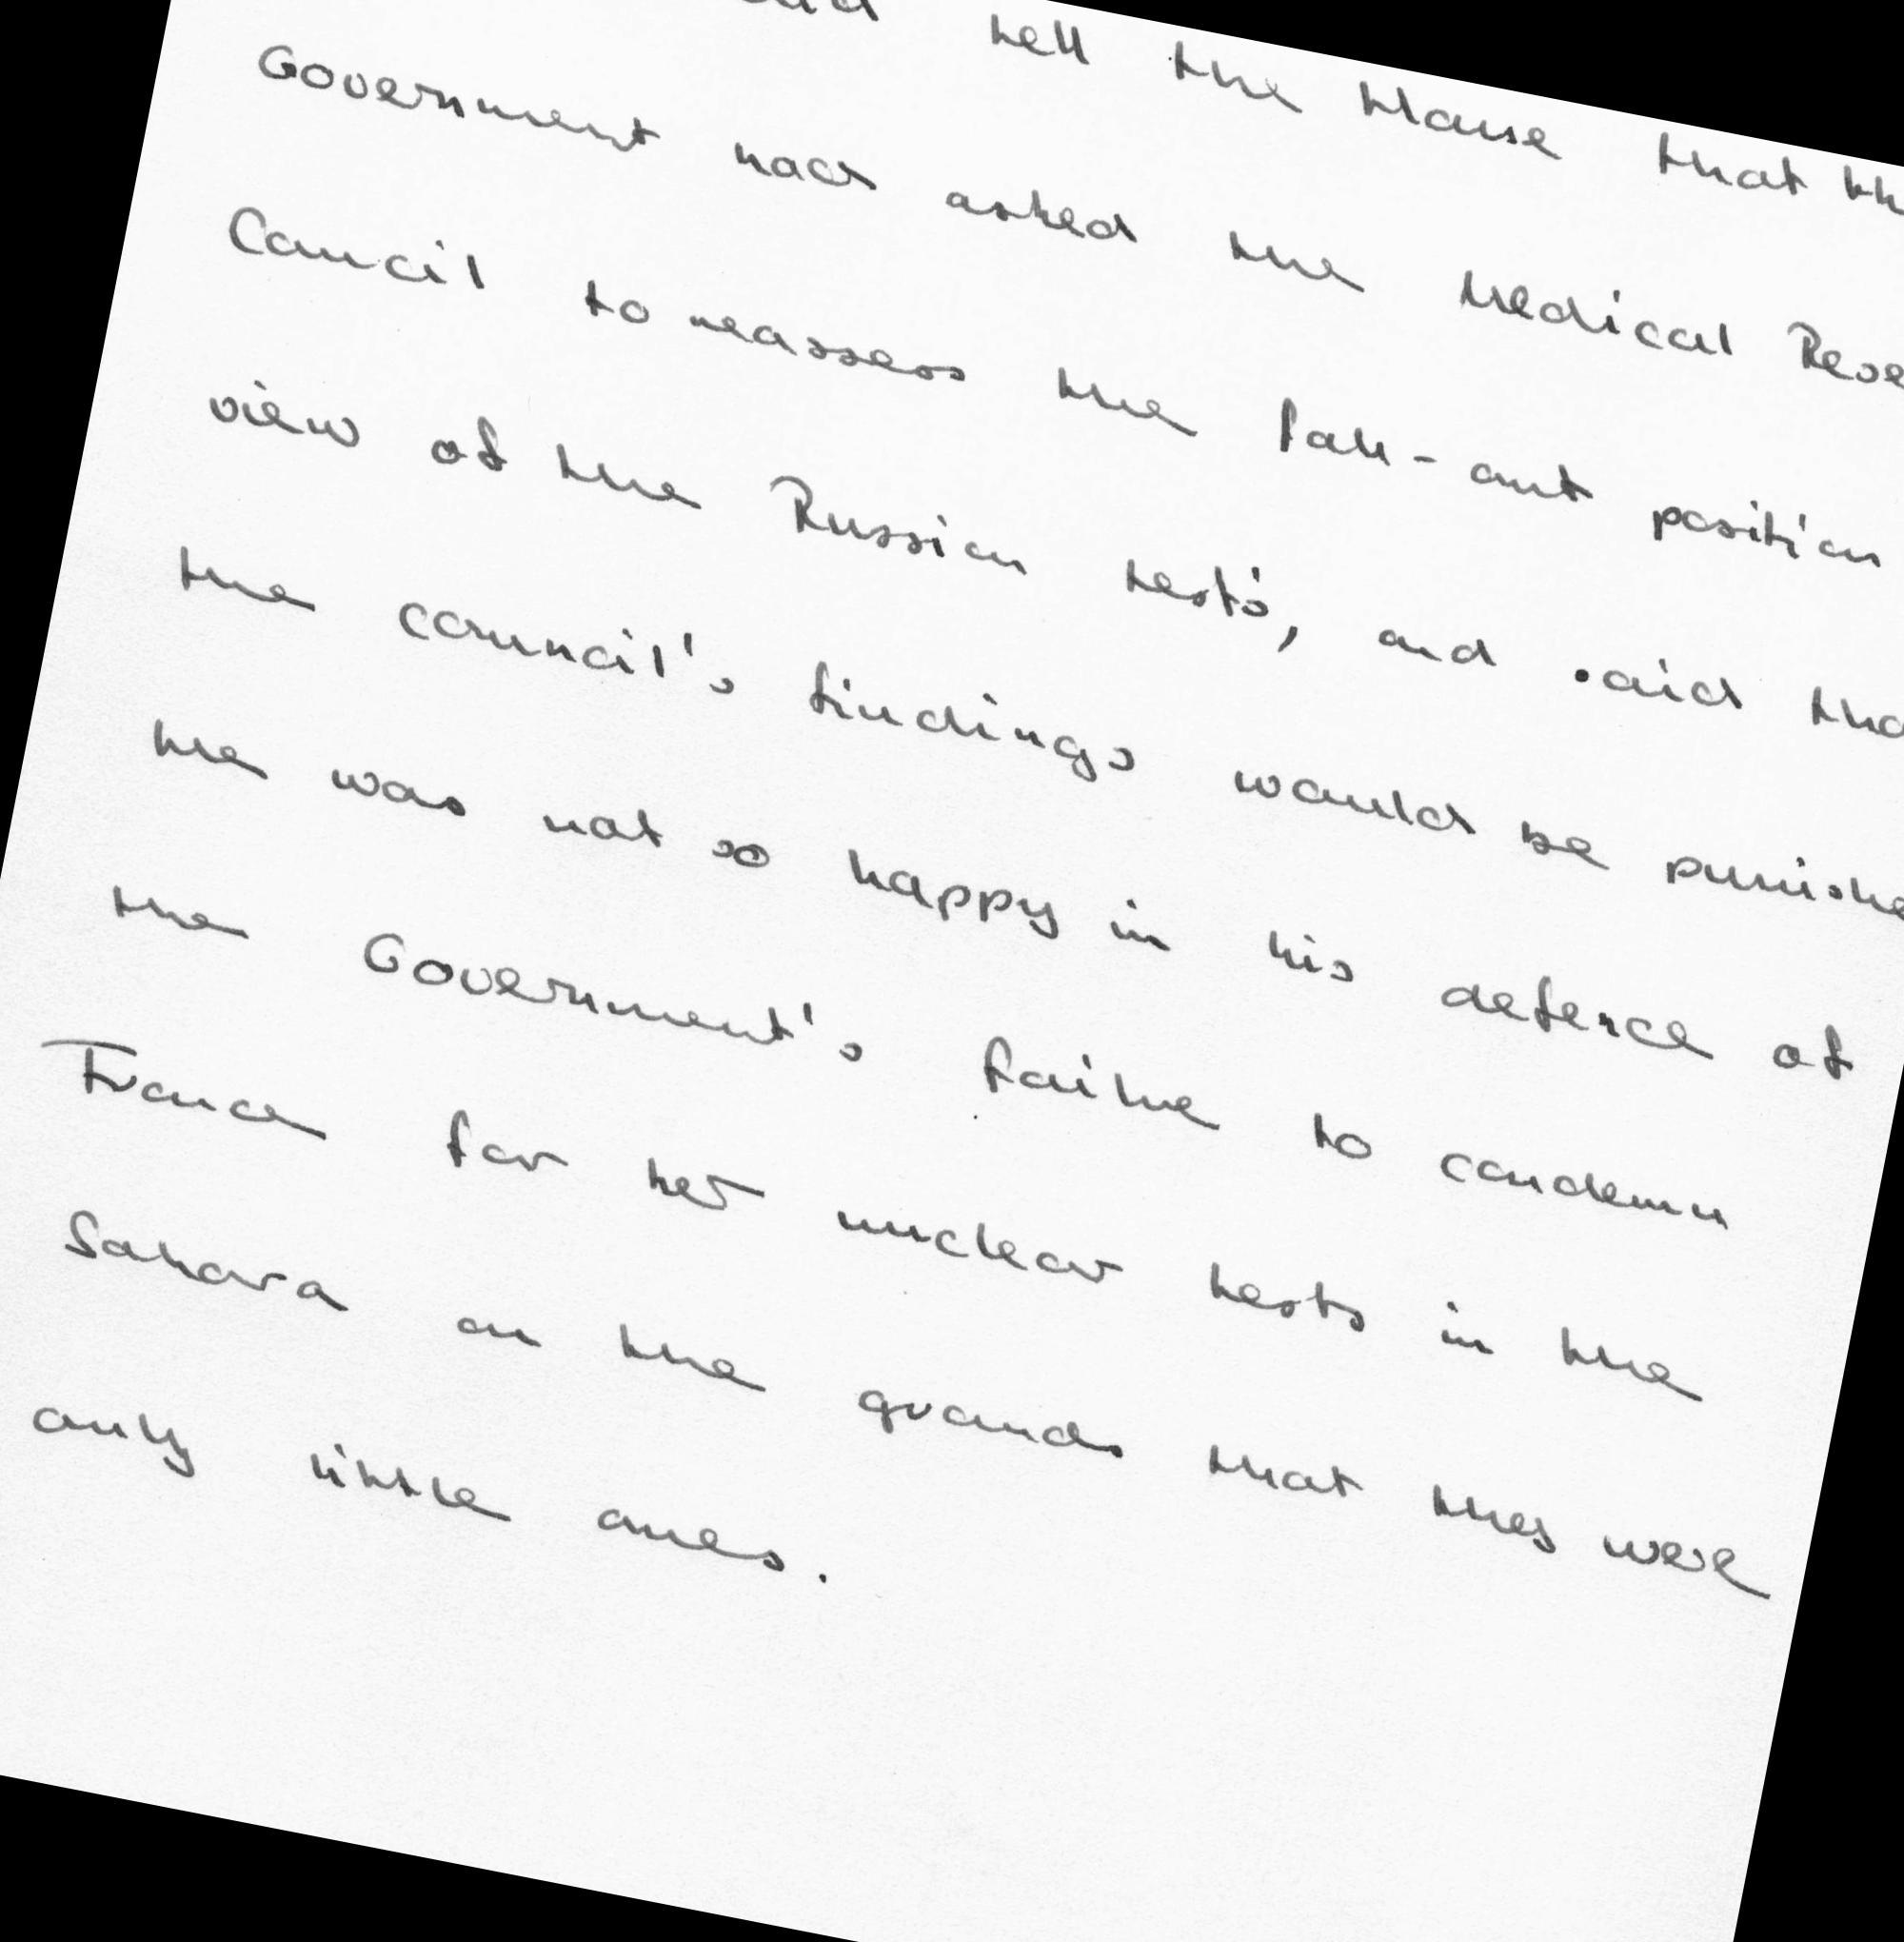 tell the House that th
Government had asked the Medical Rese
Council to reassess the fall-out position
view of the Russian tests, and said tha
the council's findings would be punishe
he was not so happy in his defence of
the Government's failure to condemn
France for her nuclear tests in the
Sahara on the grounds that they were
only little ones.